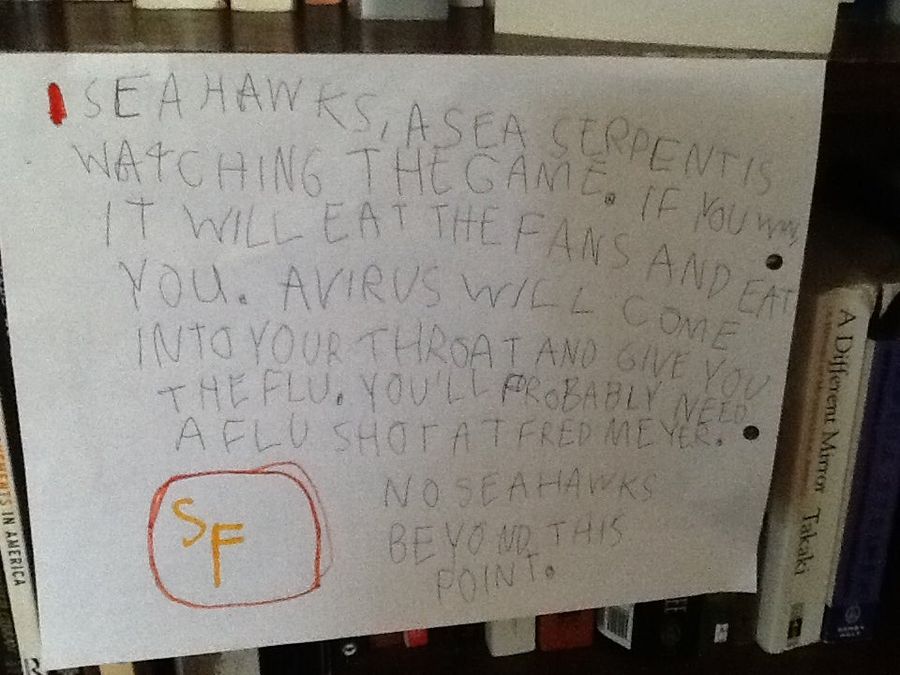 SEAHAWKS, A SEA SERPENT IS
WATCHING THE GAME. IF YOU WIN,
IT WILL EAT THE FANS AND EAT
YOU. A VIRUS WILL COME
INTO YOUR THROAT AND GIVE YOU
THE FLU. YOU'LL PROBABLY NEED
A FLU SHOT AT FRED MEYER.
NO SEAHAWKS
BEYOND THIS
POINT.
SF
A Different Mirror Takaki
IN AMERICA